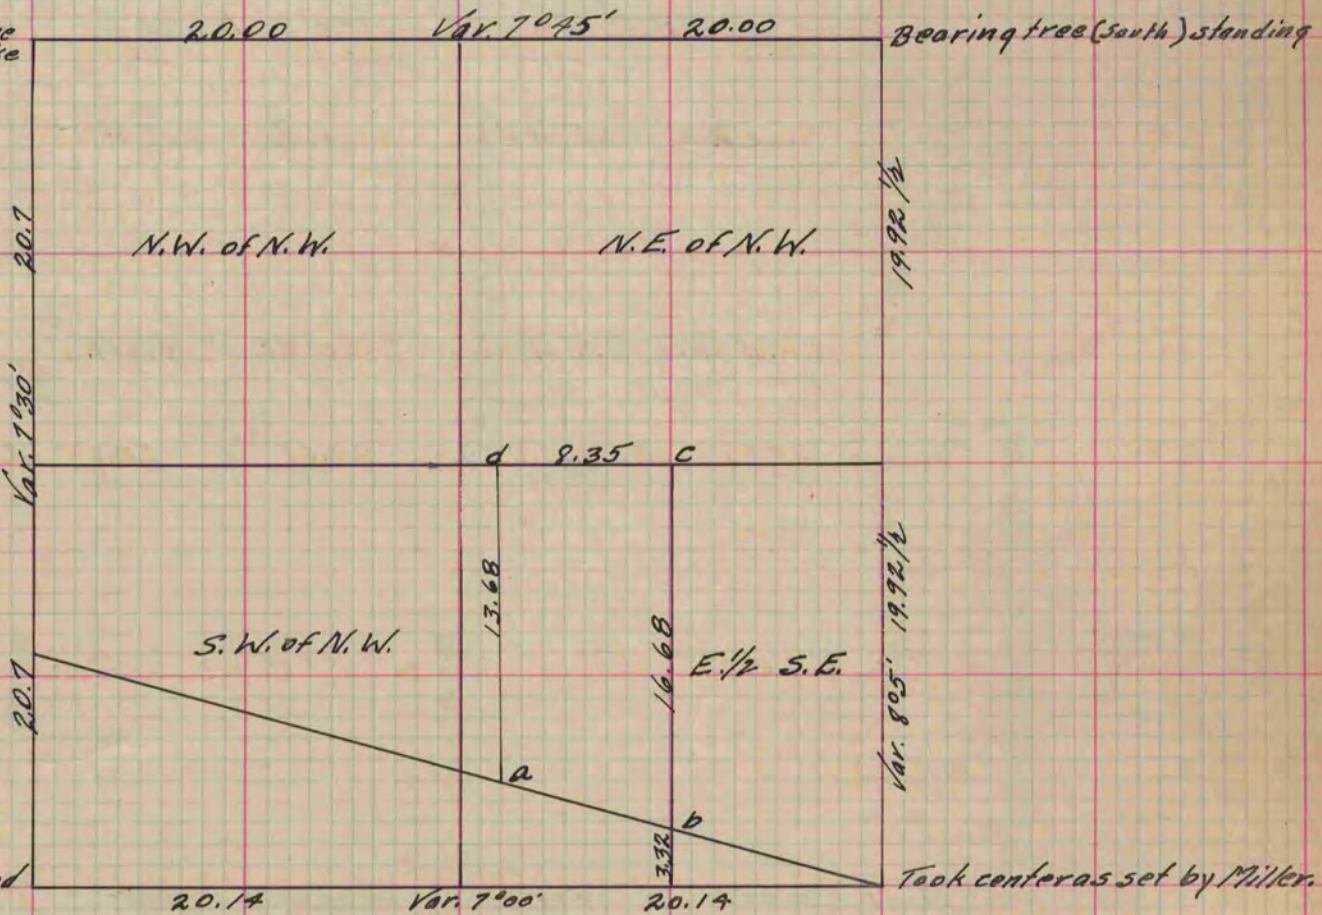 20.00 Var. 7°45' 20.00 Bearing tree (South) standing
20.7
N.W. of N.W.
N.E. of N.W.
19.92 1/2
Var. 7°30'
d 8.35 c
13.68
16.68
S.W. of N.W.
E. 1/2 S.E.
Var. 8°5' 19.92 1/2
20.7
a
b
3.32
Took center as set by Miller.
20.14 Var. 7°00' 20.14